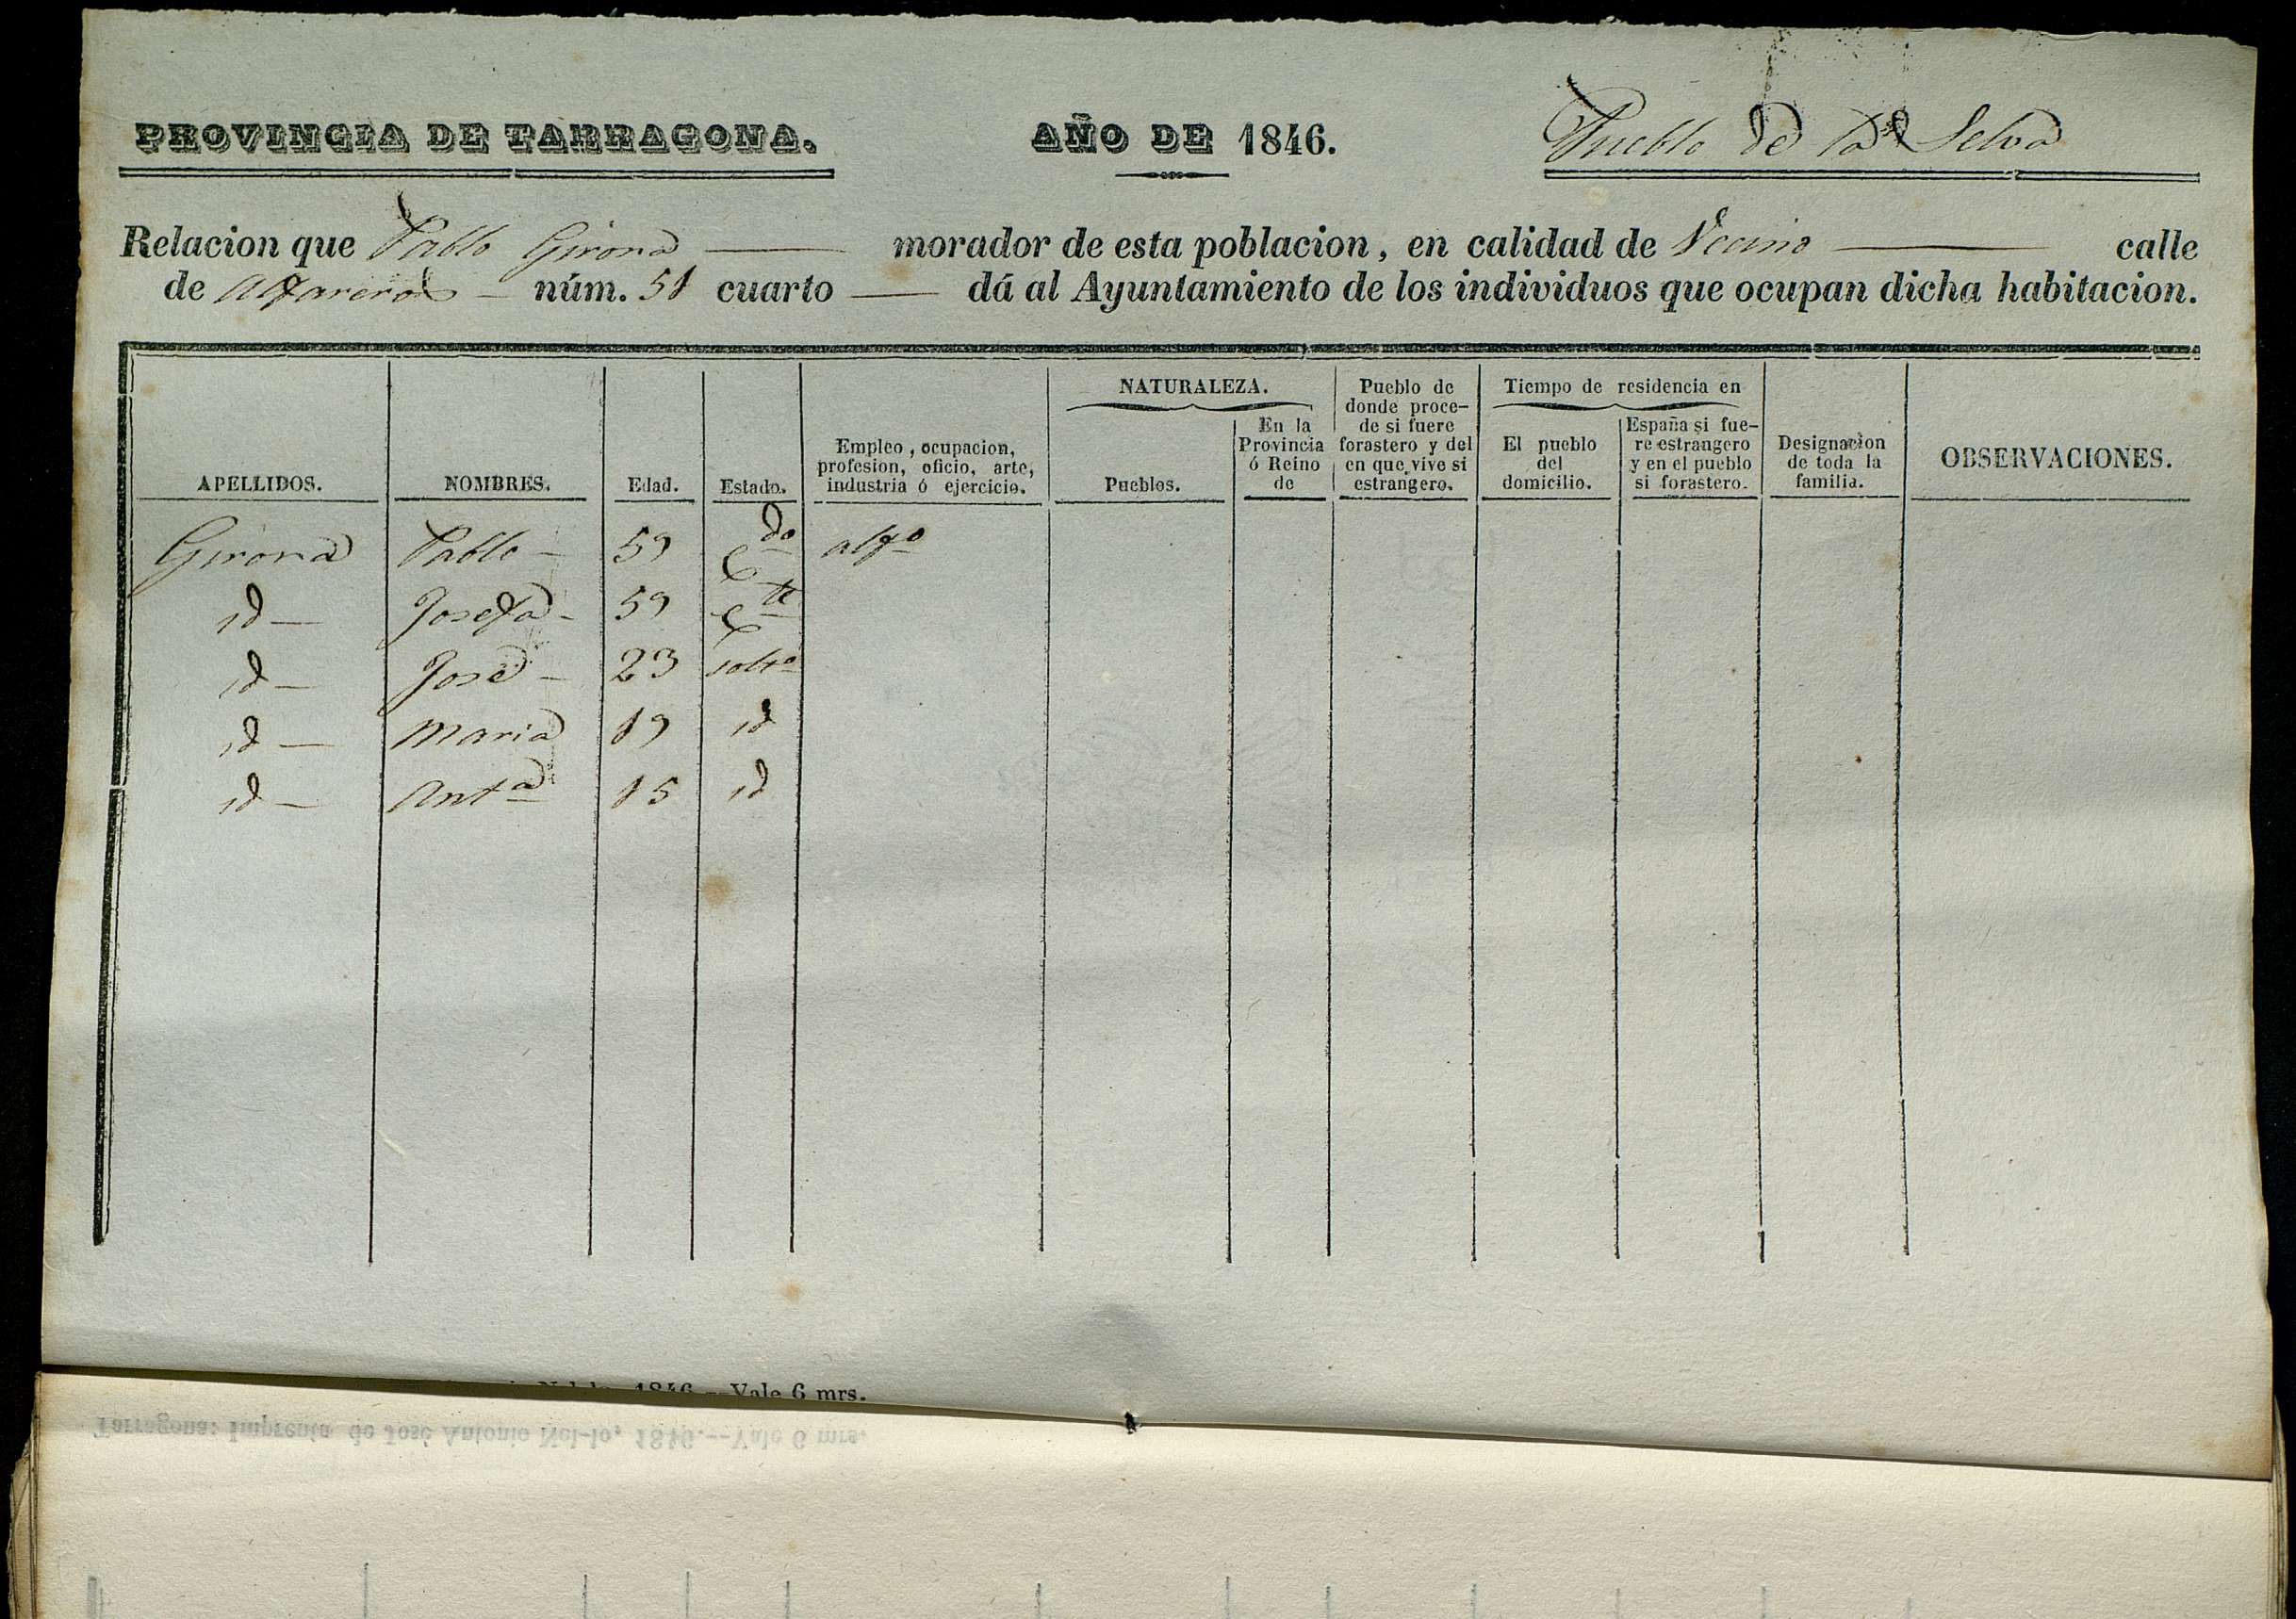 PROVINCIA DE TARRAGONA. AÑO DE 1846. Pueblo de la Selva
Relacion que Pablo Girona — morador de esta poblacion, en calidad de Vecino — calle
de Alfareros — núm. 51 cuarto — dá al Ayuntamiento de los individuos que ocupan dicha habitacion.
APELLIDOS.
NOMBRES.
Edad.
Estado.
Empleo, ocupacion,
profesion, oficio, arte,
industria ó ejercicio.
NATURALEZA.
Pueblos.
En la
Provincia
ó Reino
de
Pueblo de
donde proce-
de si fuere
forastero y del
en que vive si
estrangero.
Tiempo de residencia en
El pueblo
del
domicilio.
España si fue-
re estrangero
y en el pueblo
si forastero.
Designacion
de toda la
familia.
OBSERVACIONES.
Girona Pablo — 59 C.do alfo
id — Josefa — 59 C.te
id — José — 23 solto
id — Maria 19 id
id — Anta 15 id
1846.--Vale 6 mrs.
Tarragona: Imprenta de José Antonio Nel-lo, 1846.--Vale 6 mrs.